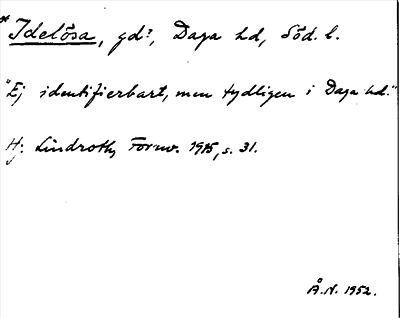 *Idelösa, gd?, Daga hd, Söd. l.
"Ej identifierbart, men tydligen i Daga hd."
Hj. Lindroth, Fornv. 1915, s. 31.
Å.N. 1952.